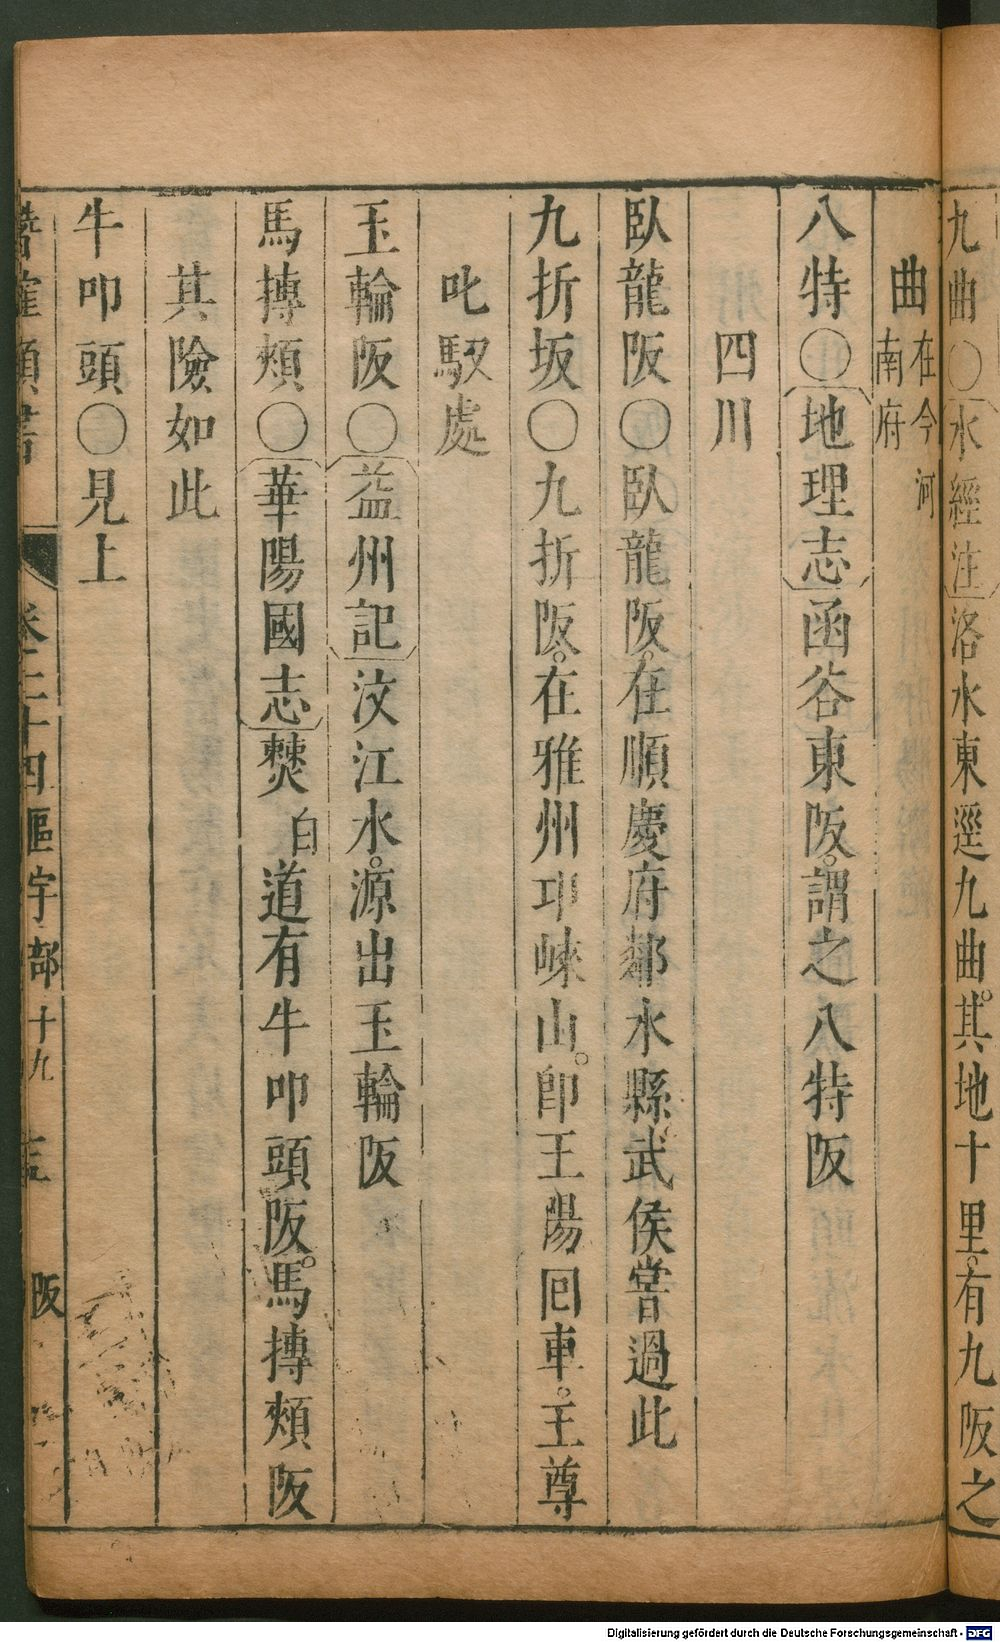 九曲○水經注洛水東逕九曲。其地十里。有九阪之
曲在今河南府
八特○地理志函谷東阪。謂之八特阪
四川
臥龍阪○臥龍阪。在順慶府鄰水縣。武侯嘗過此
九折坂○九折阪。在雅州邛崍山。卽王陽囘車。王尊
叱馭處
玉輪阪○益州記汶江水。源出玉輪阪
馬摶頰○華陽國志僰道有牛叩頭阪。馬摶頰阪
其險如此
牛叩頭○見上
卷二十四區宇部十九 阪
Digitalisierung gefördert durch die Deutsche Forschungsgemeinschaft - DFG